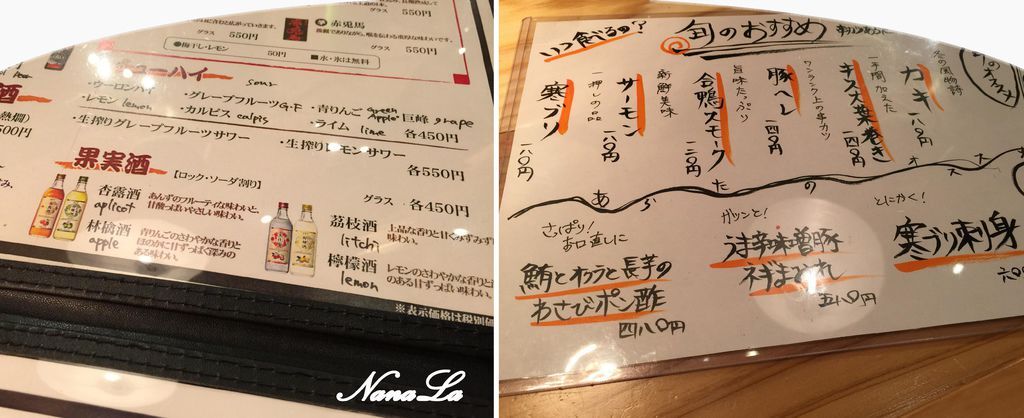 550円
グラス 550円
グラス 50円
赤兎馬
グラス 550円
●梅干・レモン 50円
■水・氷は無料
sour
・ウーロンハイ
・グレープフルーツ G.F
・青りんご green apple
・巨峰 grape
・レモン lemon
・カルピス calpis
・ライム lime
各450円
・生搾りグレープフルーツサワー
・生搾りレモンサワー
各550円
果実酒
【ロック・ソーダ割り】
グラス 各450円
杏露酒
apricot
あんずのフルーティな味わいと
甘酸っぱいやさしい味わい。
林檎酒
apple
りんごのさわやかな香りと
ほのかに甘ずっぱく深みの
ある味わい。
茘枝酒
litchi
上品な香りと甘くみずみず
味わい。
檸檬酒
lemon
レモンのさわやかな香りと
のある甘ずっぱい味わい。
※表示価格は税別価
NanaLa
いつ食べるの!?
旬のおすすめ
冬の風物詩
カキ
一手間加えた
キスズ菜巻き
一四〇円
ワンランク上の串カツ
豚ヘレ
一四〇円
旨味たっぷり
合鴨スモーク
一二〇円
新鮮美味
サーモン
一八〇円
一押しの品
寒ブリ
一八〇円
あらたのオススメ
さっぱり!
お口直しに
鮪とオクラと長芋の
わさびポン酢
四八〇円
ガツンと!
うま辛味噌豚
ネギまみれ
五八〇円
とにかく!
寒ブリ刺身